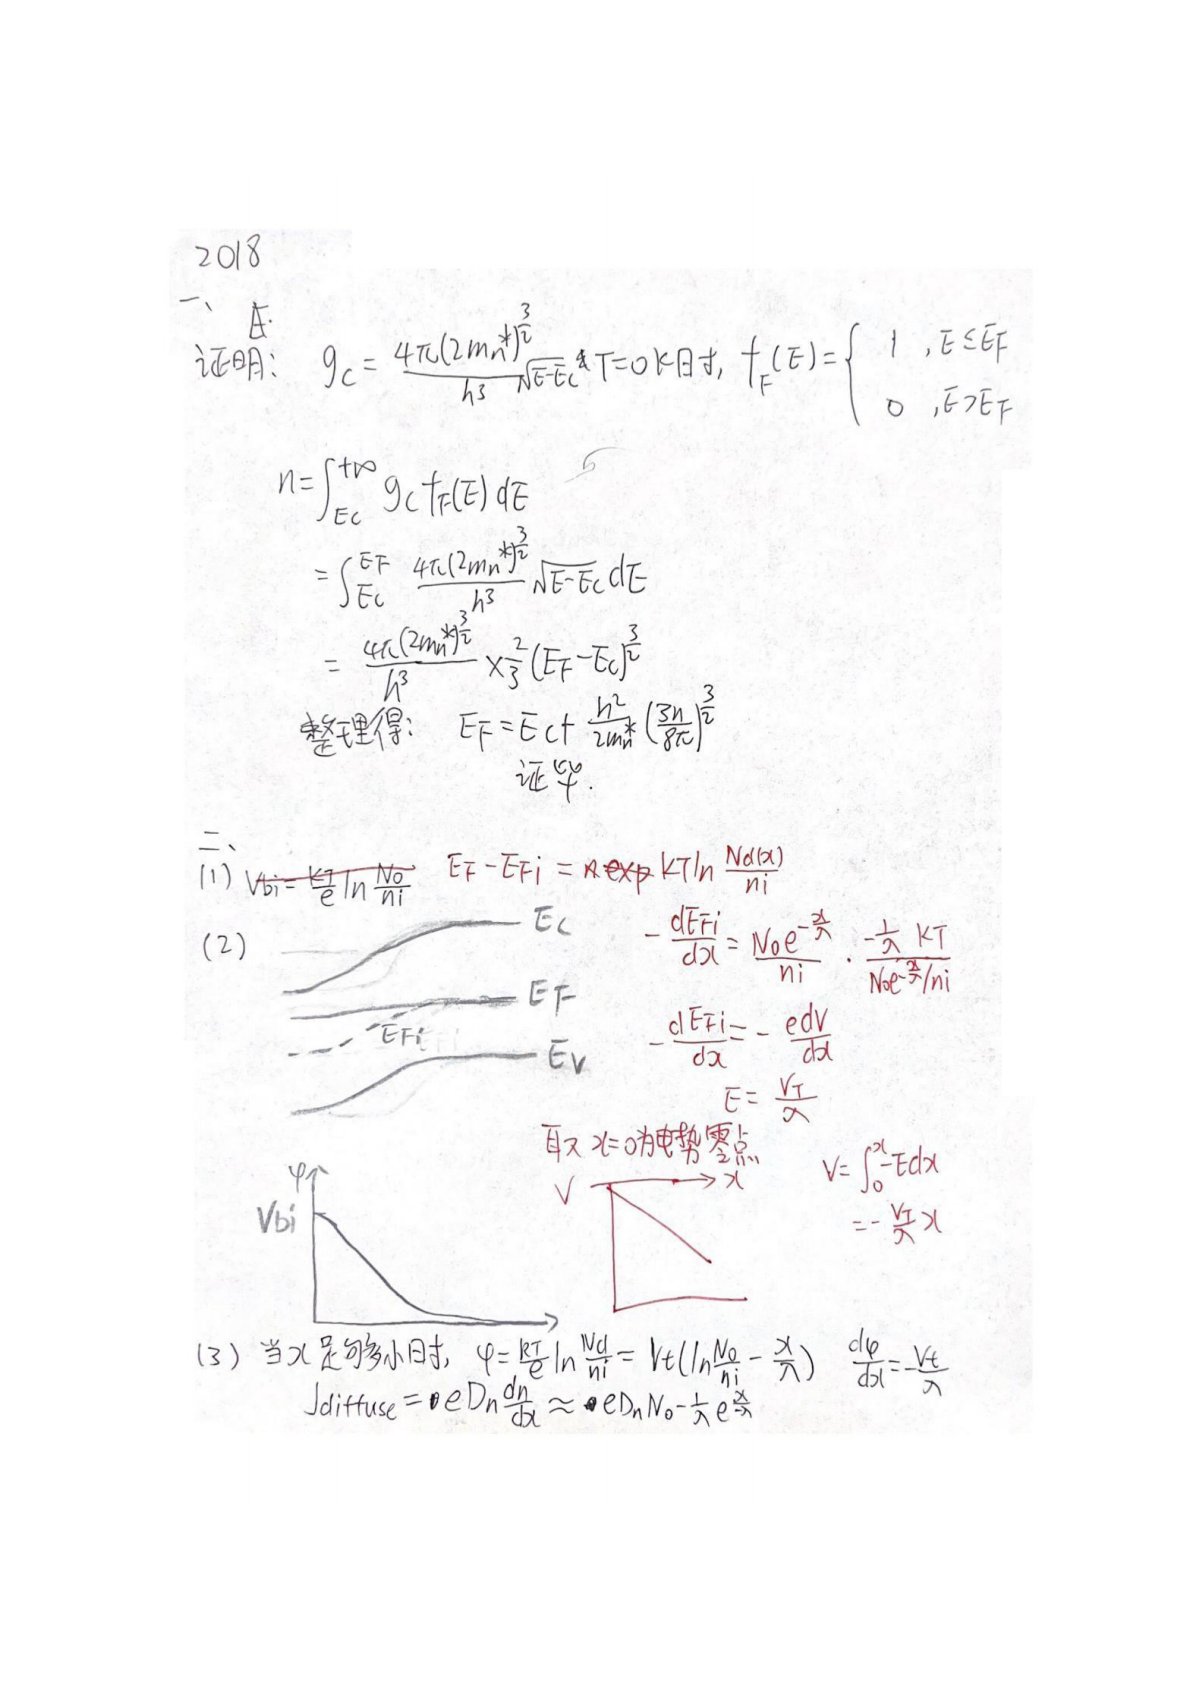 2018
一、
证明: g_C = 4π(2m_n*)^{3/2}/h³ √(E-E_C) T=0K时, f_F(E) = { 1 , E≤E_F
0 , E>E_F
n = ∫_{E_C}^{+∞} g_C f_F(E) dE
= ∫_{E_C}^{E_F} 4π(2m_n*)^{3/2}/h³ √(E-E_C) dE
= 4π(2m_n*)^{3/2}/h³ × 2/3 (E_F-E_C)^{3/2}
整理得: E_F = E_C + h²/2m_n* (3n/8π)^{3/2}
证毕.
二、
(1) V_bi = kT/e ln N_0/n_i E_F - E_Fi = kT ln N_d(x)/n_i
(2)
E_C
E_F
E_Fi
E_V
- dE_Fi/dx = N_0 e^{-x/λ}/n_i · (-1/λ kT)/(N_0 e^{-x/λ}/n_i)
- dE_Fi/dx = - edV/dx
E = V_T/λ
取x=0为电势零点
V = ∫_0^x -Edx
= - V_T/λ x
φ
V_bi
V
x
(3) 当x足够多小时, φ = kT/e ln N_d/n_i = V_t(ln N_0/n_i - x/λ) dφ/dx = -V_t/λ
J_diffuse = eD_n dn/dx ≈ eD_n N_0 - 1/λ e^{x/λ}